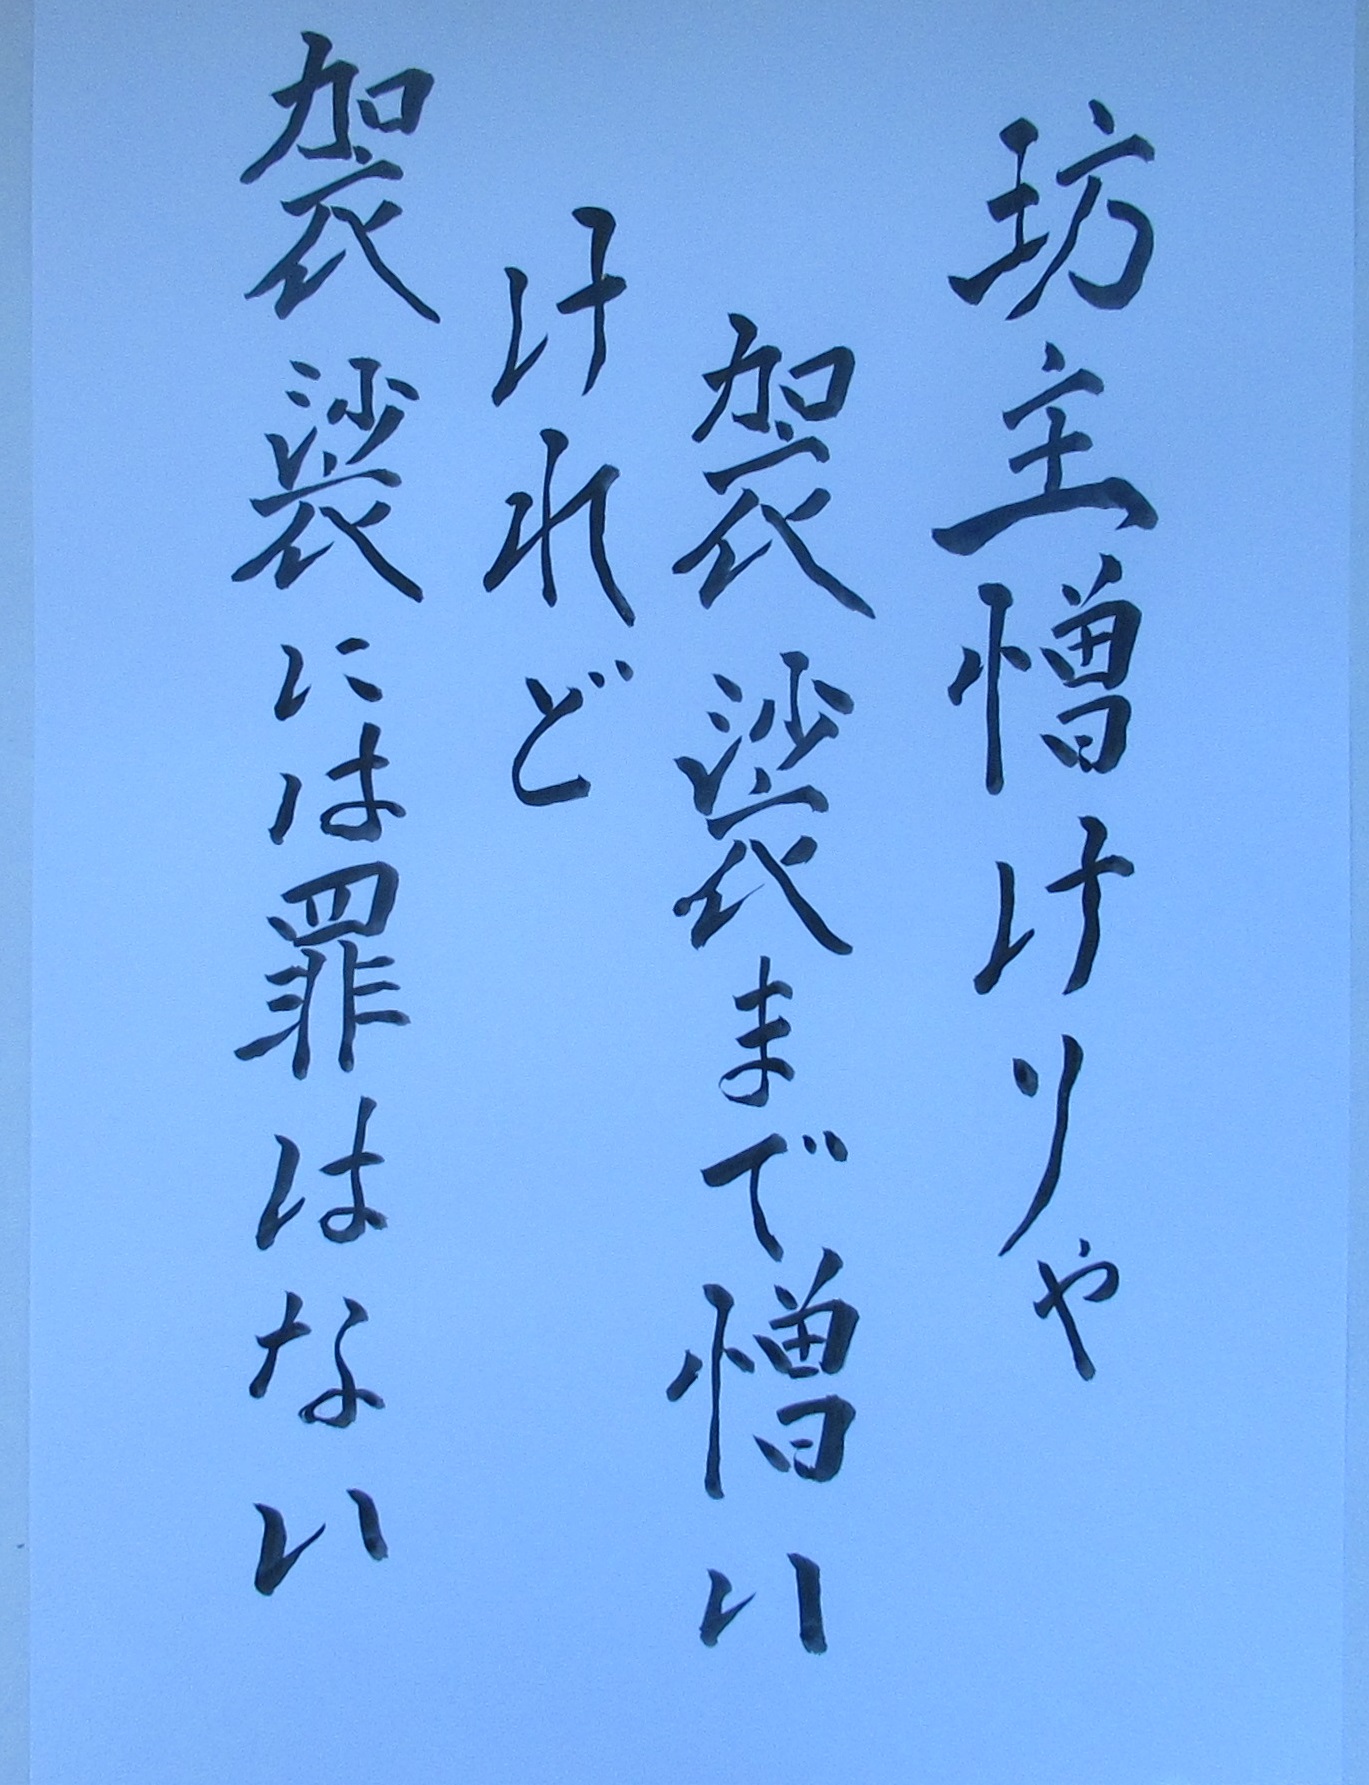 坊主憎けりゃ
袈裟まで憎い
けれど
袈裟には罪はない